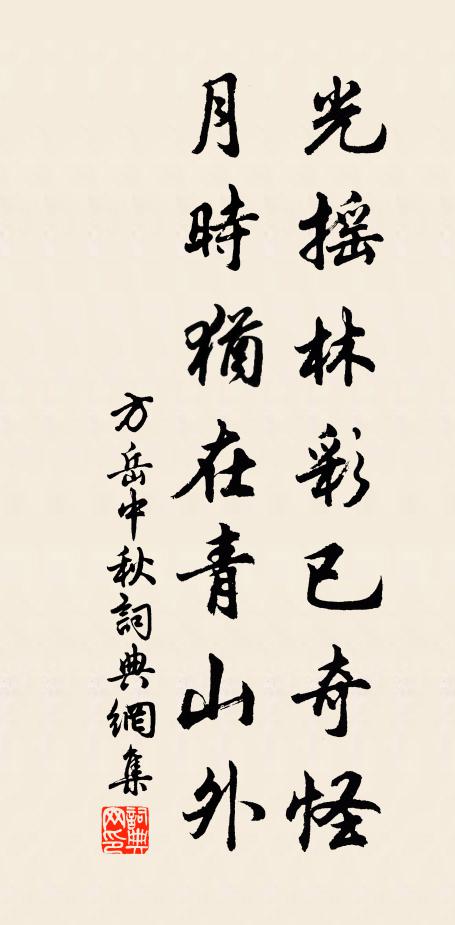 光摇林彩已奇怪
月時猶在青山外
方岳中秋詞典網集
詞典
网印